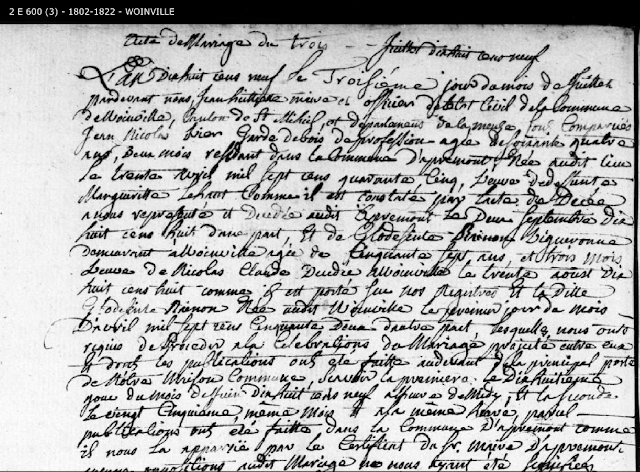 2 E 600 (3) - 1802-1822 - WOINVILLE
Acte de Mariage du trois Juillet dix huit cens neuf
L'an Dix huit cens neuf le Troisiéme jour du mois de Juillet
pardevant nous, Jean maire et officier de letat Civil de la Commune
de Woinville, Canton de St Mihiel et departement de la meuse, sont Comparües
Jean Nicolas Garde de bois de profession agée de soixante quatre
ans, Deux mois residant dans la Commune d'apremont Née audit lieu
le trente avril mil sept cens quarante Cinq, Veuve de defunte
Marguerite Comme il est constaté par l'acte de Décée
a nous representé Decedée audit apremont Le Deux Septembre dix
huit cens huit d'une part, Et de Glodesinde
demeurant a Woinville agée de Cinquante Sept ans, et trois mois
Veuve de Nicolas Claude Decedée a Woinville le treize aoust Dix
huit cens huit comme il est porté sur nos Registres Et la Ditte
Glodesinde Née audit Woinville le premier jour du mois
D'avril mil sept cens Cinquante Deux d'autre part, lesquels nous ont
requis de Proceder a la Celebration du Mariage projeté entre eux
Et dont les publications ont été faitte audevant de la principal porte
de Notre Maison Commune, Scavoir la premiere le Dix huitieme
jour du mois de Juin Dix huit cens neuf a l'heure de Midy, Et la seconde
le Vingt Cinquieme, meme Mois Et a la même heure, pareil
publications ont été faitte dans la Commune D'apremont comme
il nous la apparüe par le Certificat du Sr. Maire d'apremont
audit Mariage ne nous ayant été